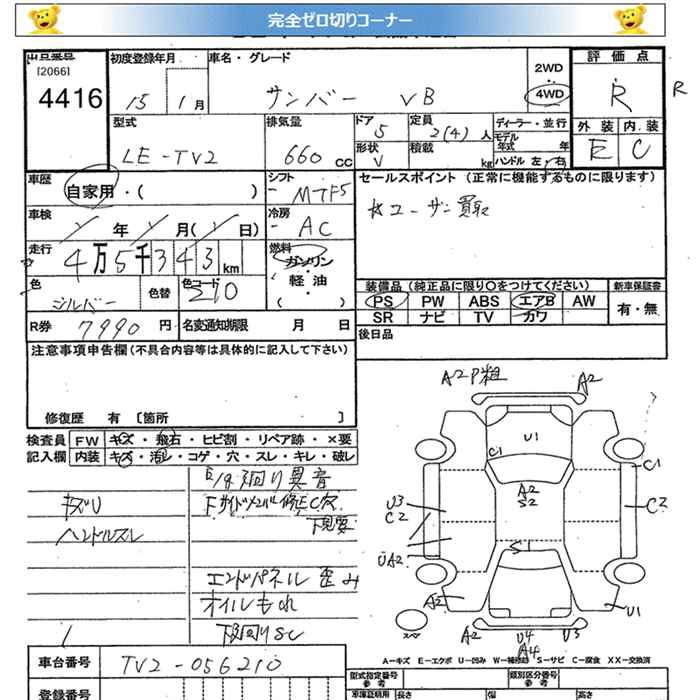 完全ゼロ切りコーナー
出品番号 初度登録年月 車名・グレード 2WD 評価点
[2066] 4WD
4416 15 1月 サンバー VB R R
型式 排気量 ドア 定員 ディーラー・並行 外装 内装
LE-TV2 660 CC 5 2(4)人 モデル年式 年 E C
形状 V 積載 kg ハンドル 左・右
車歴 シフト セールスポイント (正常に機能するものに限ります)
自家用・( ) MTF5
車検 冷房 ユーザー買取
年 月( 日) AC
走行 燃料
4万5千343km ガソリン
色 色替 色コード 軽・油
シルバー 210 ( )
装備品(純正品に限り〇をつけてください) 新車保証書
PS PW ABS エアB AW 有・無
SR ナビ TV カワ
R券 7990円 名変通知期限 月 日 後日品
注意事項申告欄(不具合内容等は具体的に記入して下さい)
修復歴 有 [箇所 ]
検査員 FW キズ・飛石・ヒビ割・リペア跡・×要
記入欄 内装 キズ・汚レ・コゲ・穴・スレ・キレ・破レ
キズU
ハンドルスレ
廻り異音
Fサイドメンバー修正C穴
下見要
エンドパネル歪み
オイルもれ
下廻りSC
A2 P粗 A2
U1
C1 C1
A2
S2
U3 C2
C2
UA2
S1
A2 U1
スペア A2 U4 U3
A4
A-キズ E-エクボ U-凹み W-補修跡 S-サビ C-腐食 XX-交換済
車台番号 TV2-056210
型式指定番号 類別区分番号
参考 参考
登録番号 車庫証明用 長さ 幅 高さ